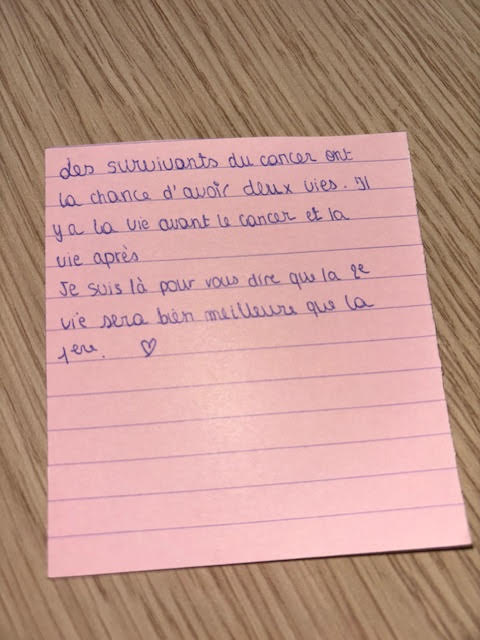 des survivants du cancer ont
la chance d'avoir deux vies. Il
y a la vie avant le cancer et la
vie après
Je suis là pour vous dire que la 2e
vie sera bien meilleure que la
1ere. ♡